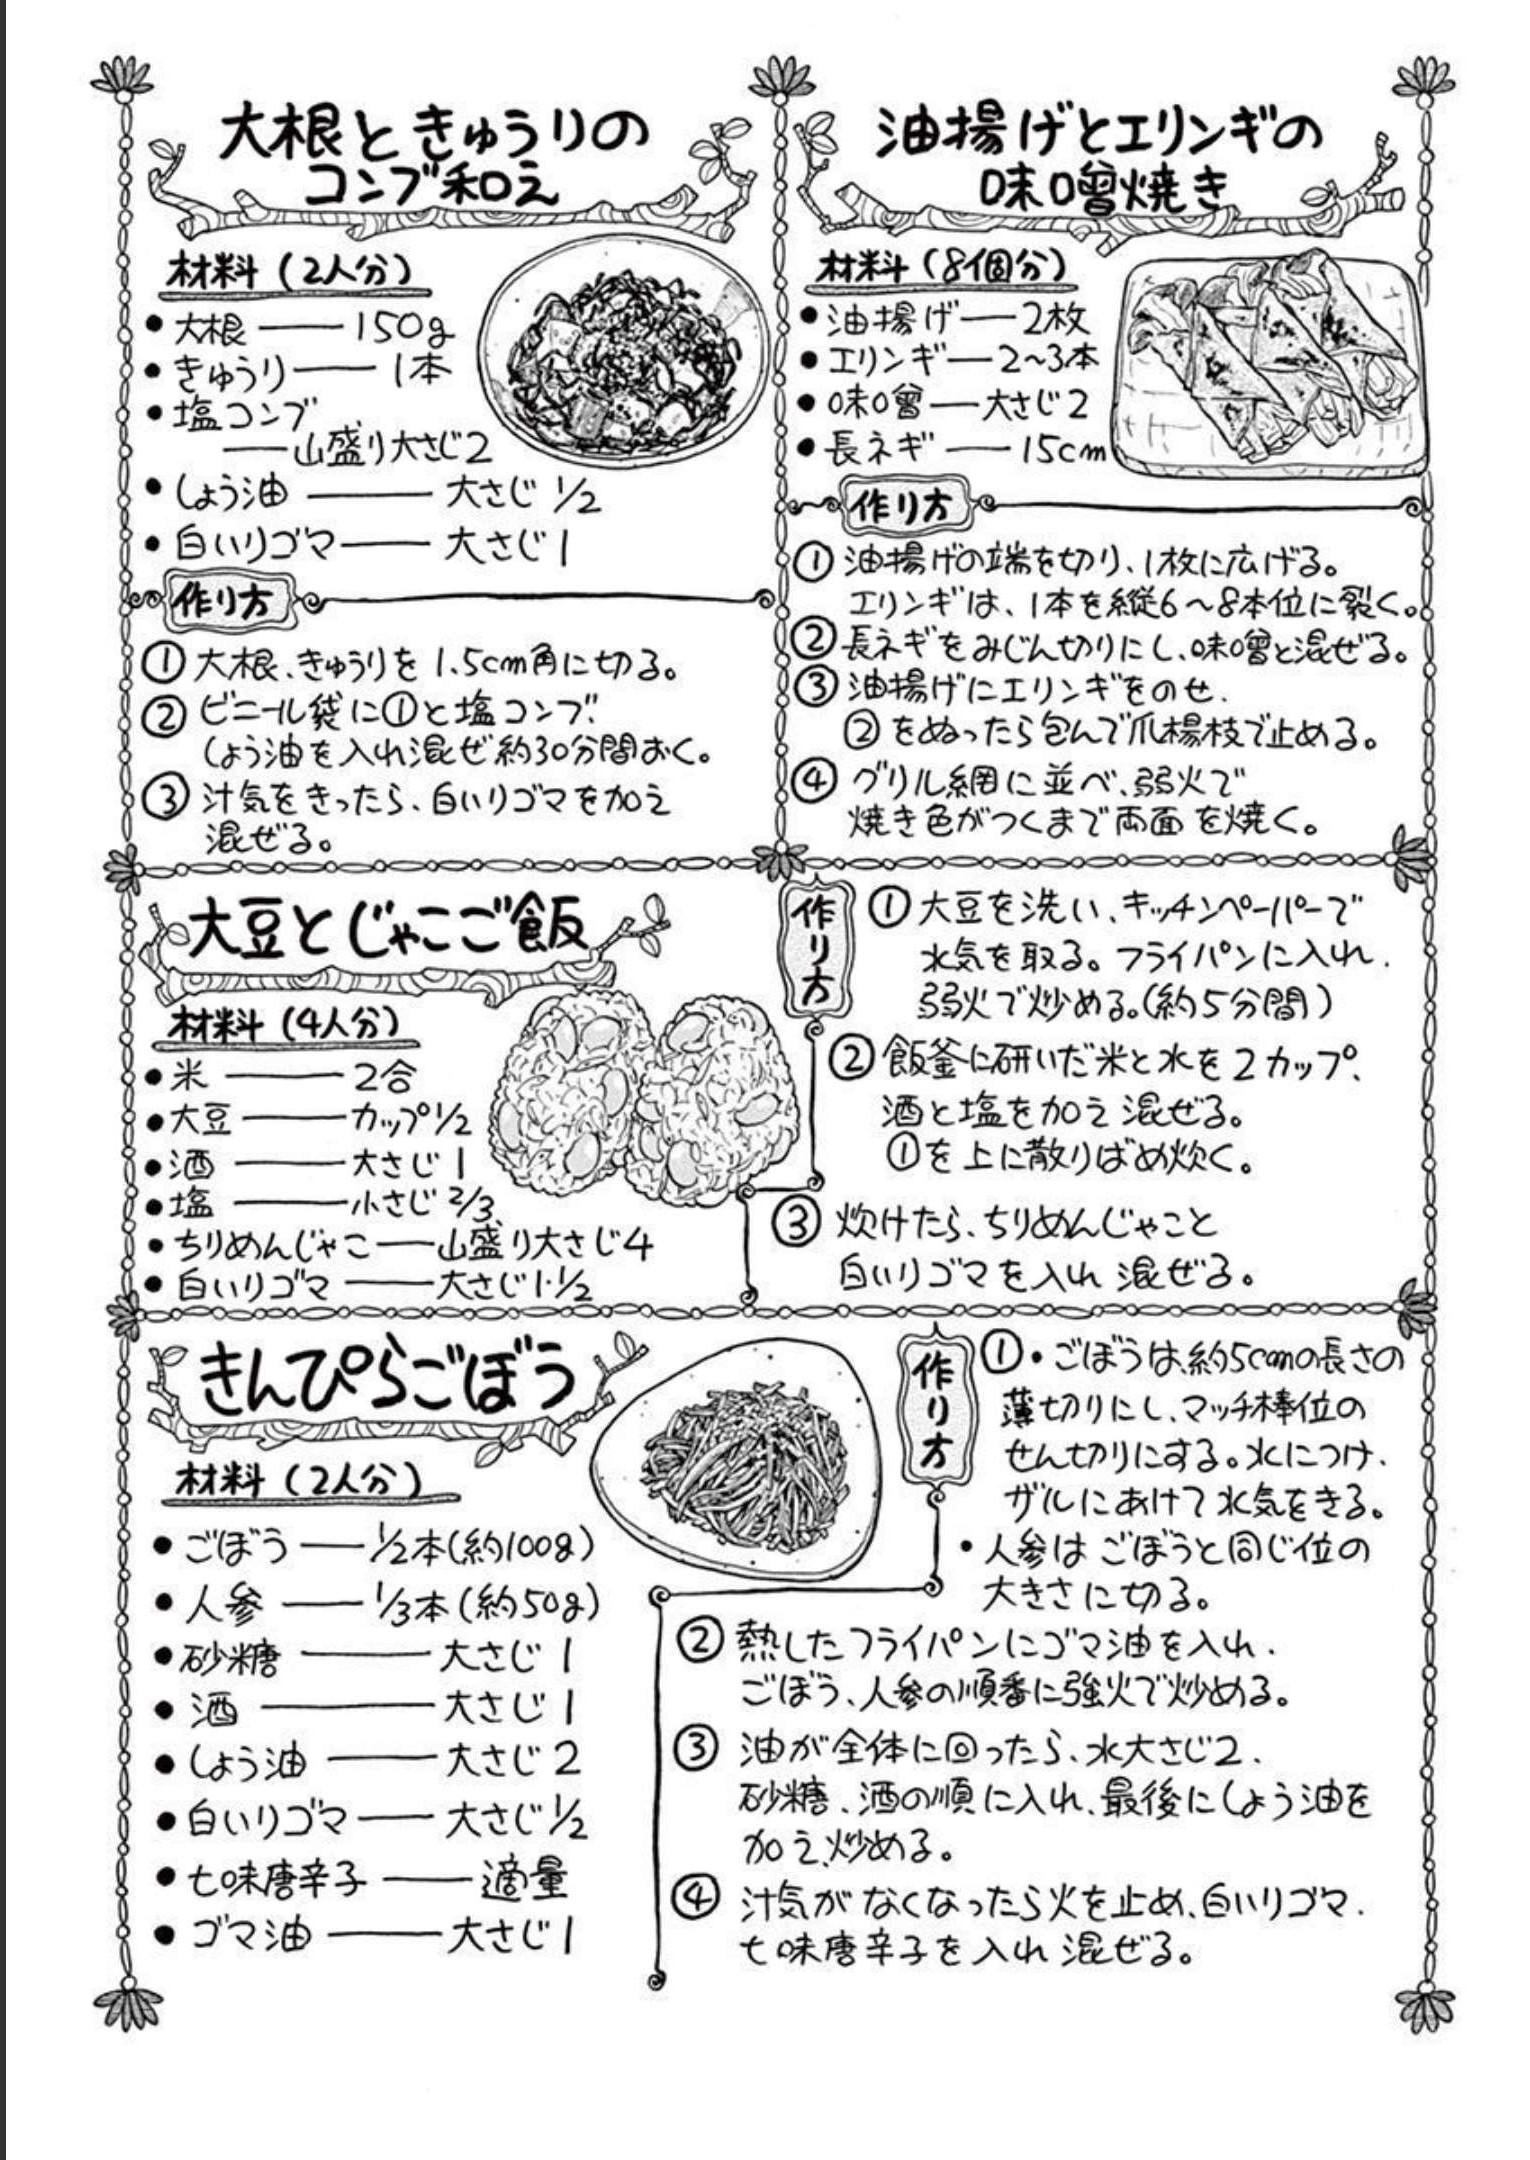 大根ときゅうりの
コンブ和え
材料(2人分)
• 大根 — 150g
• きゅうり — 1本
• 塩コンブ
— 山盛り大さじ2
• しょう油 — 大さじ1/2
• 白いりゴマ — 大さじ1
作り方
① 大根、きゅうりを1.5cm角に切る。
② ビニール袋に①と塩コンブ、
しょう油を入れ混ぜ約30分間おく。
③ 汁気をきったら、白いりゴマを加え
混ぜる。
油揚げとエリンギの
味噌焼き
材料(8個分)
• 油揚げ — 2枚
• エリンギ — 2~3本
• 味噌 — 大さじ2
• 長ネギ — 15cm
作り方
① 油揚げの端を切り、1枚に広げる。
エリンギは、1本を縦6~8本位に裂く。
② 長ネギをみじん切りにし、味噌と混ぜる。
③ 油揚げにエリンギをのせ、
②をぬったら包んで爪楊枝で止める。
④ グリル網に並べ、弱火で
焼き色がつくまで両面を焼く。
大豆とじゃこご飯
材料(4人分)
• 米 — 2合
• 大豆 — カップ1/2
• 酒 — 大さじ1
• 塩 — 小さじ2/3
• ちりめんじゃこ — 山盛り大さじ4
• 白いりゴマ — 大さじ1・1/2
作り方
① 大豆を洗い、キッチンペーパーで
水気を取る。フライパンに入れ、
弱火で炒める。(約5分間)
② 飯釜に研いだ米と水を2カップ、
酒と塩を加え混ぜる。
①を上に散りばめ炊く。
③ 炊けたら、ちりめんじゃこと
白いりゴマを入れ混ぜる。
きんぴらごぼう
材料(2人分)
• ごぼう — 1/2本(約100g)
• 人参 — 1/3本(約50g)
• 砂糖 — 大さじ1
• 酒 — 大さじ1
• しょう油 — 大さじ2
• 白いりゴマ — 大さじ1/2
• 七味唐辛子 — 適量
• ゴマ油 — 大さじ1
作り方
① • ごぼうは、約5cmの長さの
薄切りにし、マッチ棒位の
せん切りにする。水につけ、
ザルにあけて水気をきる。
• 人参はごぼうと同じ位の
大きさに切る。
② 熱したフライパンにゴマ油を入れ、
ごぼう、人参の順番に強火で炒める。
③ 油が全体に回ったら、水大さじ2、
砂糖、酒の順に入れ、最後にしょう油を
加え、炒める。
④ 汁気がなくなったら火を止め、白いりゴマ、
七味唐辛子を入れ混ぜる。